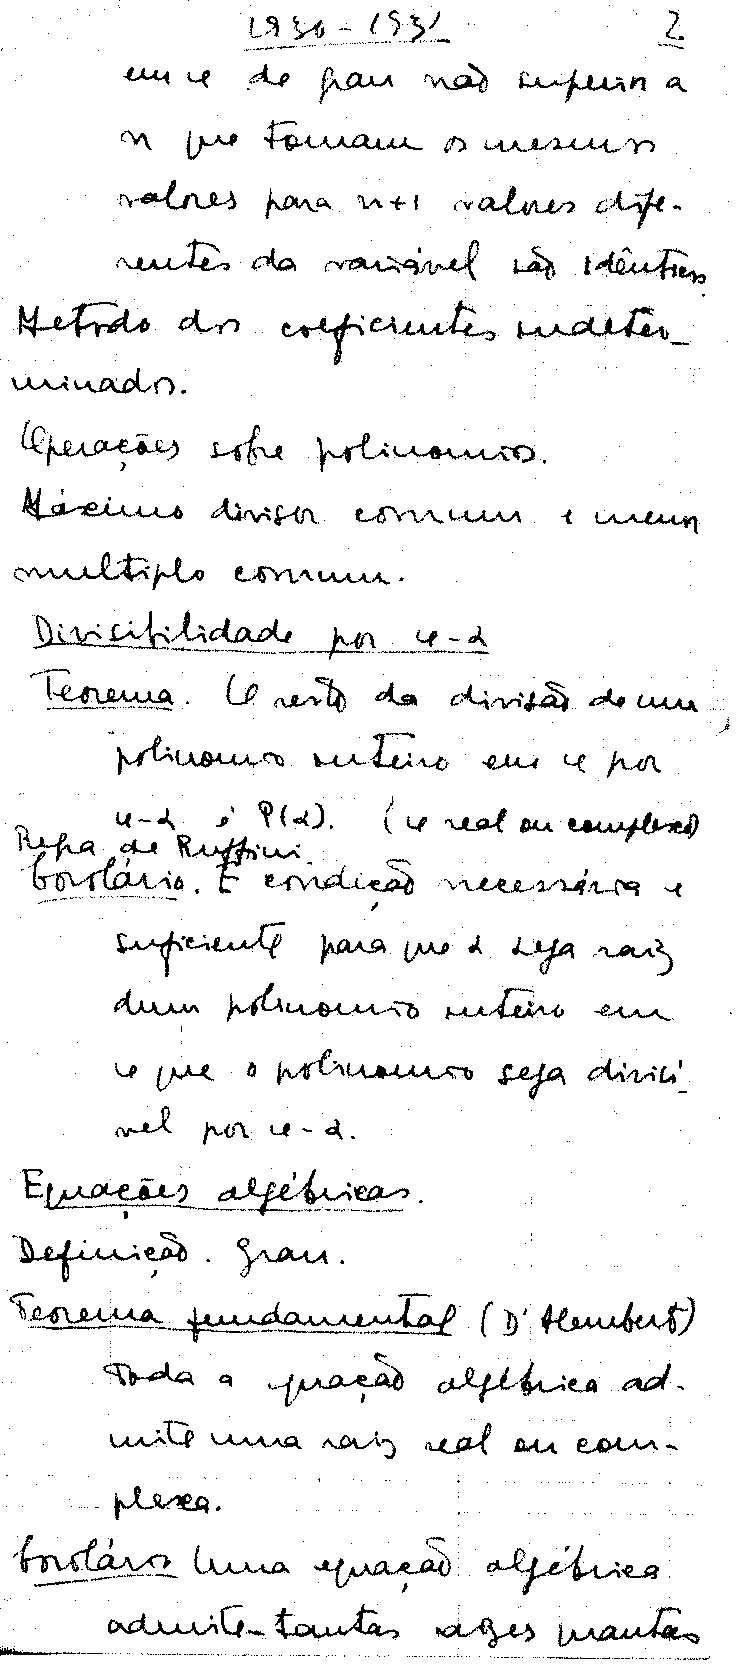 1930-1931 2
em x de grau não superior a
n que tomam os mesmos
valores para n+1 valores dife-
rentes da variável são idênticos.
Metodo dos coeficientes indeter-
minados.
Operações sobre polinomios.
Máximo divisor comum e menor
multiplo comum.
Divisibilidade por x-α
Teorema. O resto da divisão de um
polinomio inteiro em x por
x-α é P(α). (x real ou complexo)
Regra de Ruffini.
Corolário. É condição necessária e
suficiente para que α seja raiz
dum polinomio inteiro em
x que o polinomio seja divisí-
vel por x-α.
Equações algébricas.
Definição. Grau.
Teorema fundamental (D'Alembert)
Toda a equação algébrica ad-
mite uma raiz real ou com-
plexa.
Corolário Uma equação algébrica
admite tantas raizes quantas